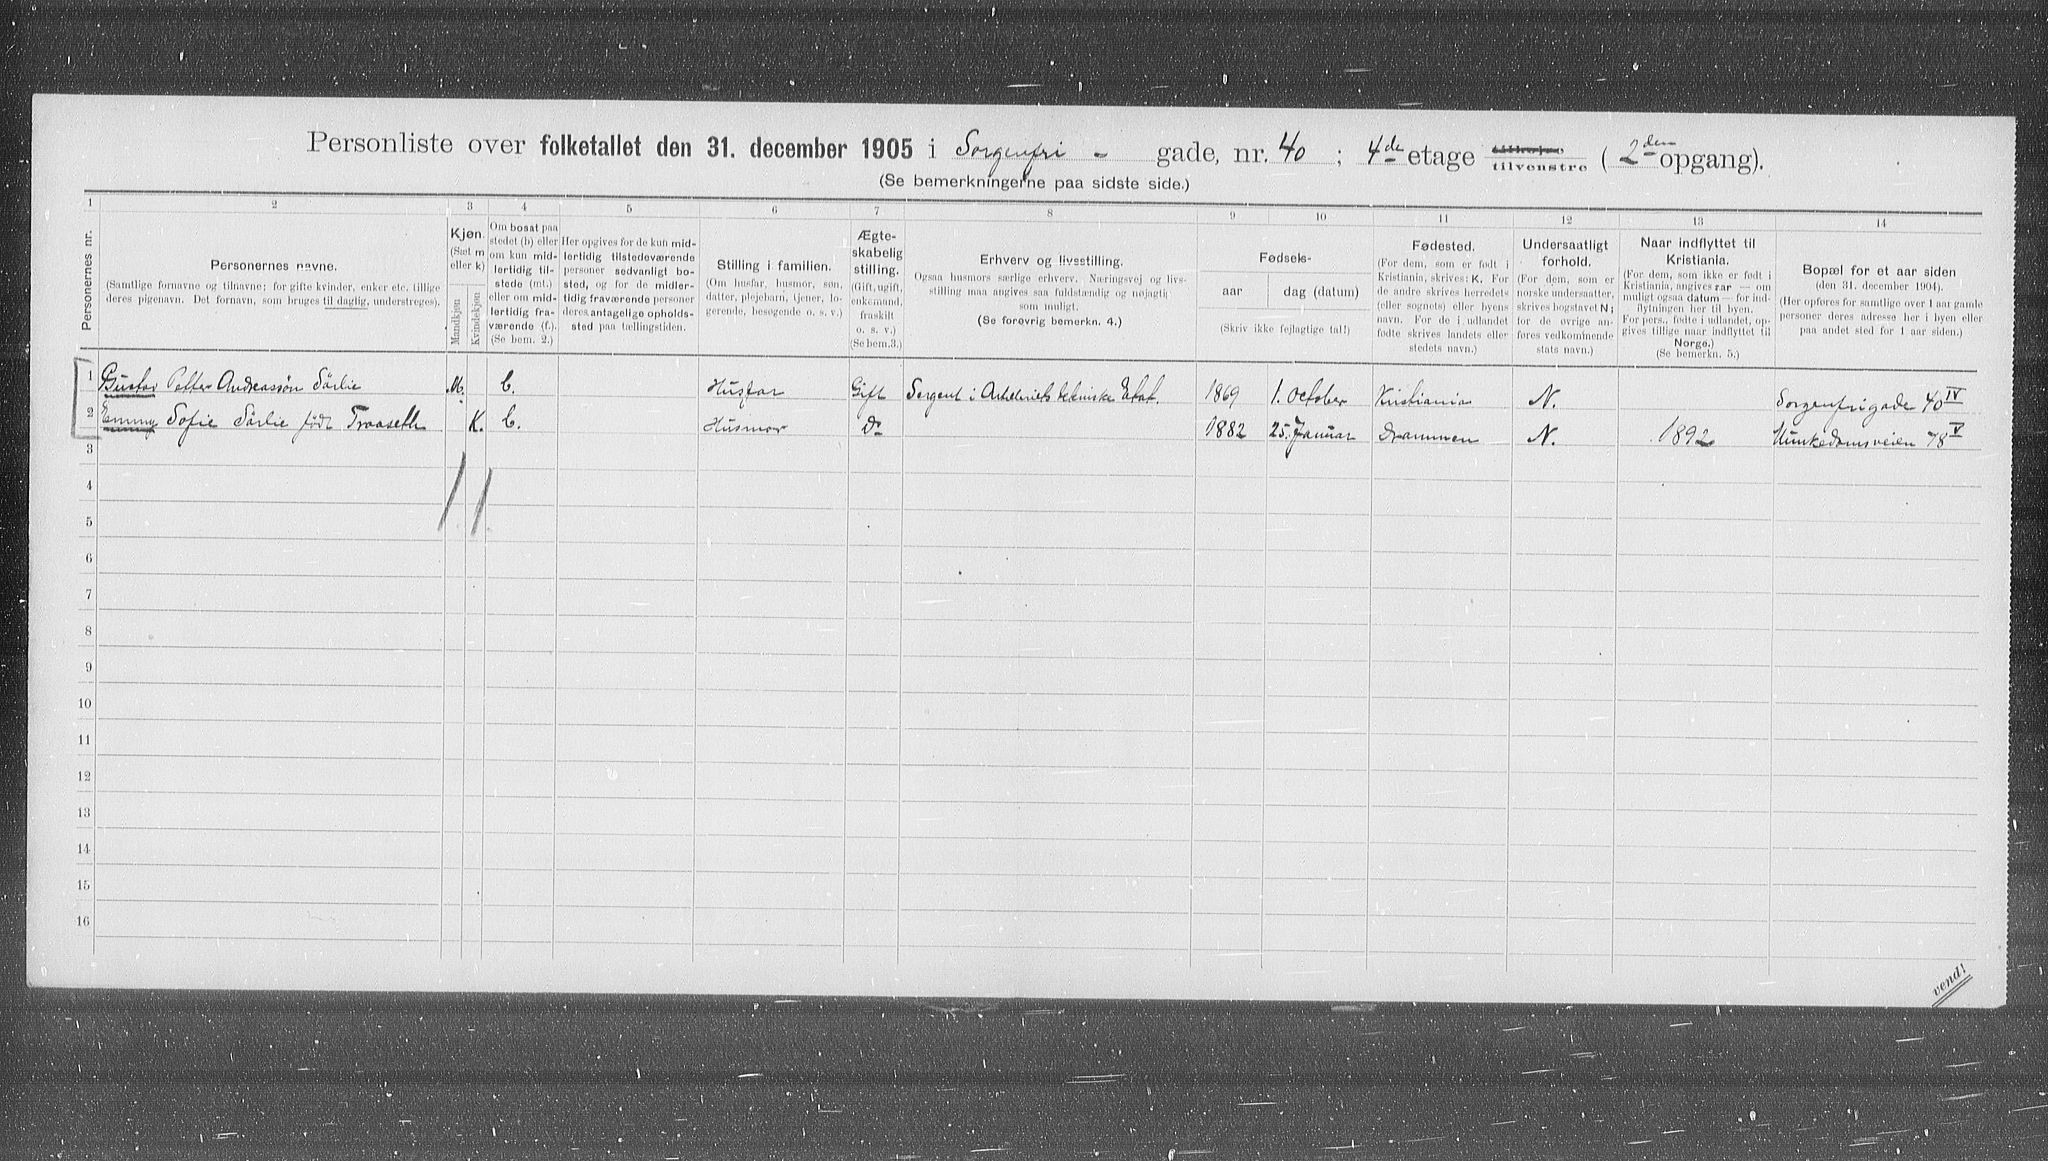 Personliste over folketallet den 31. december 1905 i Sorgenfri - gade, nr. 40 ; 4de etage tilhøire tilvenstre ( 2den opgang).
(Se bemerkningerne paa sidste side.)
1 2 3 4 5 6 7 8 9 10 11 12 13 14
Personernes nr.
Personernes navne.
(Samtlige fornavne og tilnavne; for gifte kvinder, enker etc. tillige
deres pigenavn. Det fornavn, som bruges til daglig, understreges).
Kjøn.
(Sæt m
eller k)
Mandkjøn
Kvindekjøn
Om bosat paa
stedet (b) eller
om kun mid-
lertidig til-
stede (mt.)
eller om mid-
lertidig fra-
værende (f.).
(Se bem. 2.)
Her opgives for de kun mid-
lertidig tilstedeværende
personer sedvanligt bo-
sted, og for de midler-
tidig fraværende personer
deres antagelige opholds-
sted paa tællingstiden.
Stilling i familien.
(Om husfar, husmor, søn,
datter, plejebarn, tjener, lo-
gerende, besøgende o. s. v.)
Ægte-
skabelig
stilling.
(Gift, ugift,
enkemand,
fraskilt
o. s. v.)
(Se bem.3.)
Erhverv og livsstilling.
Ogsaa husmors særlige erhverv. Næringsvej og livs-
stilling maa angives saa fuldstændig og nøjagtig
som muligt.
(Se forøvrig bemerkn. 4.)
Fødsels-
aar
dag (datum)
(Skriv ikke fejlagtige tal!)
Fødested.
(For dem, som er født i
Kristiania, skrives: K. For
de andre skrives herredets
(eller sognets) eller byens
navn. For de i udlandet
fødte skrives landets eller
stedets navn.)
Undersaatligt
forhold.
(For dem, som er
norske undersaatter,
skrives bogstavet N;
for de øvrige an-
føres vedkommende
stats navn.)
Naar indflyttet til
Kristiania.
(For dem, som ikke er født i
Kristiania, angives aar — om
muligt ogsaa datum — for ind-
flytningen her til byen.
For pers., fødte i udlandet, op-
gives tillige naar indflyttet til
Norge.)
(Se bemerkn. 5.)
Bopæl for et aar siden
(den 31. december 1904).
(Her opføres for samtlige over 1 aar gamle
personer deres adresse her i byen eller
paa andet sted for 1 aar siden.)
1 Gustav Petter Andreassøn Sørlie M. b. Husfar Gift Sergent i Artileriets tekniske Etat. 1869 1. October Kristiania N. Sorgenfrigade 40 IV
2 Emmy Sofie Sørlie født Traaseth K. b. Husmor Do 1882 25. Januar Drammen N. 1892 Munkedamsveien 78 V
3
4
5
6
7
8
9
10
11
12
13
14
15
16
vend!